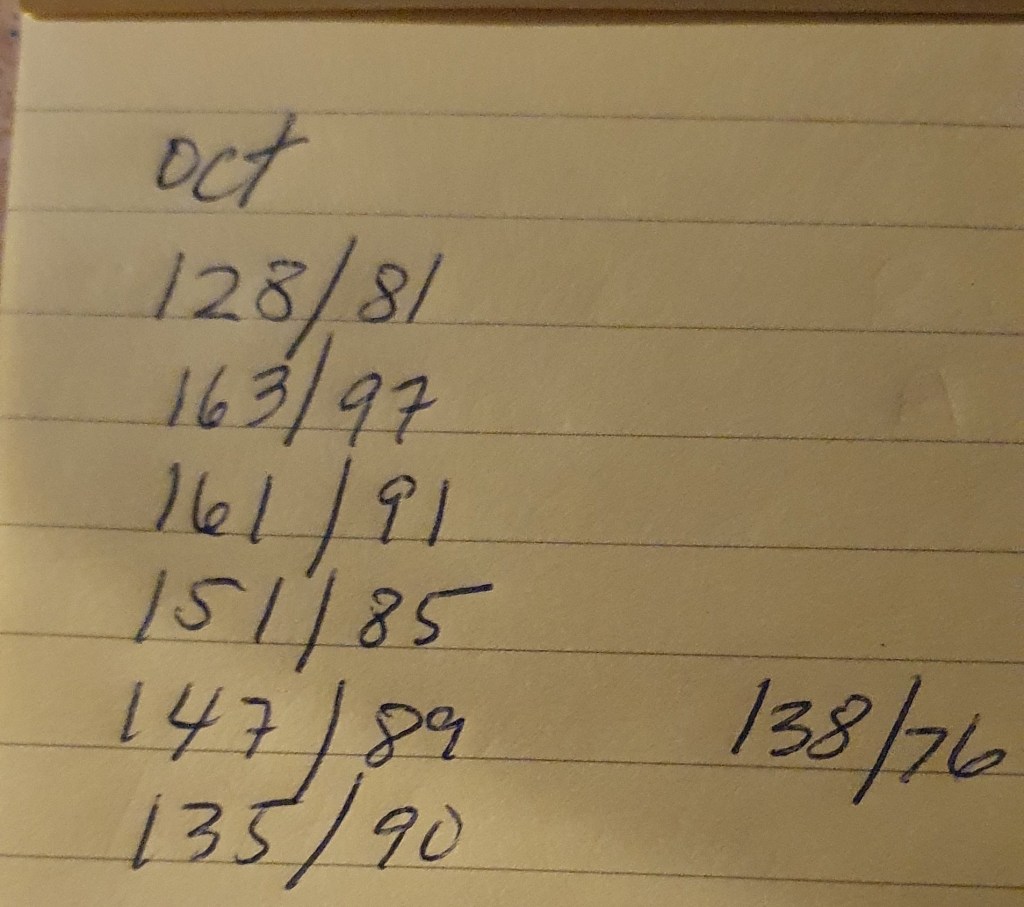 oct
128/81
163/97
161/91
151/85
147/89 138/76
135/90